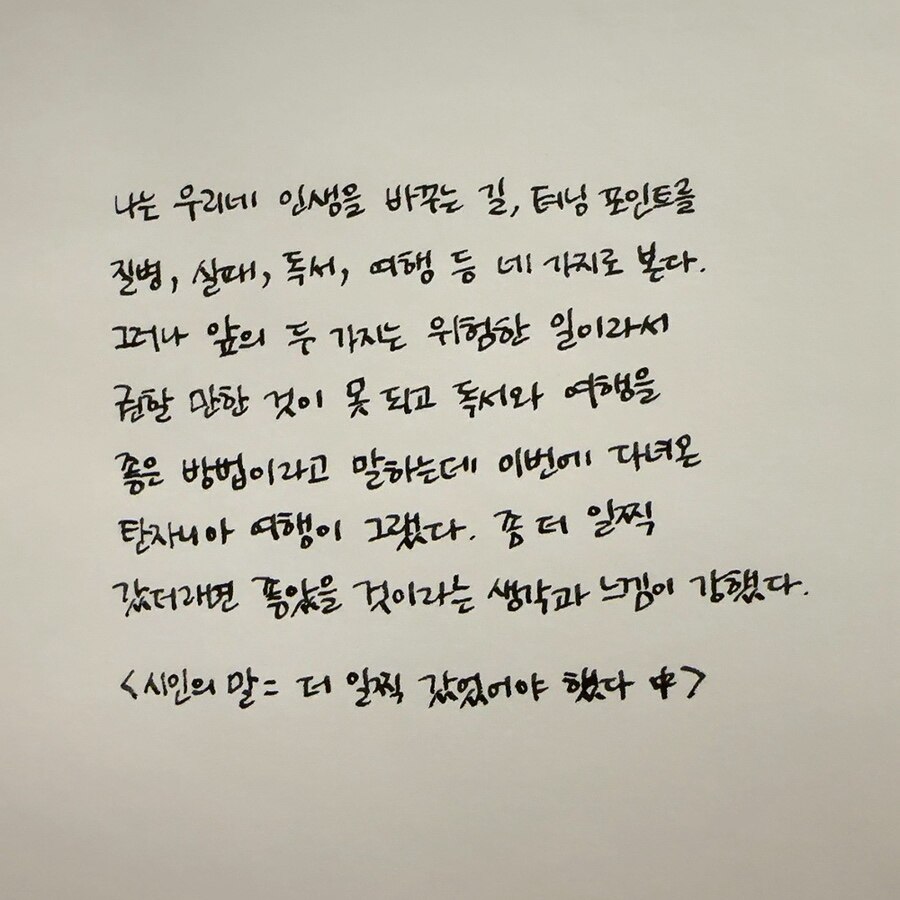 나는 우리네 인생을 바꾸는 길, 터닝 포인트를
질병, 실패, 독서, 여행 등 네 가지로 본다.
그러나 앞의 두 가지는 위험한 일이라서
권할 만한 것이 못 되고 독서와 여행을
좋은 방법이라고 말하는데 이번에 다녀온
탄자니아 여행이 그랬다. 좀 더 일찍
갔더라면 좋았을 것이라는 생각과 느낌이 강했다.
<시인의 말= 더 일찍 갔었어야 했다 中>